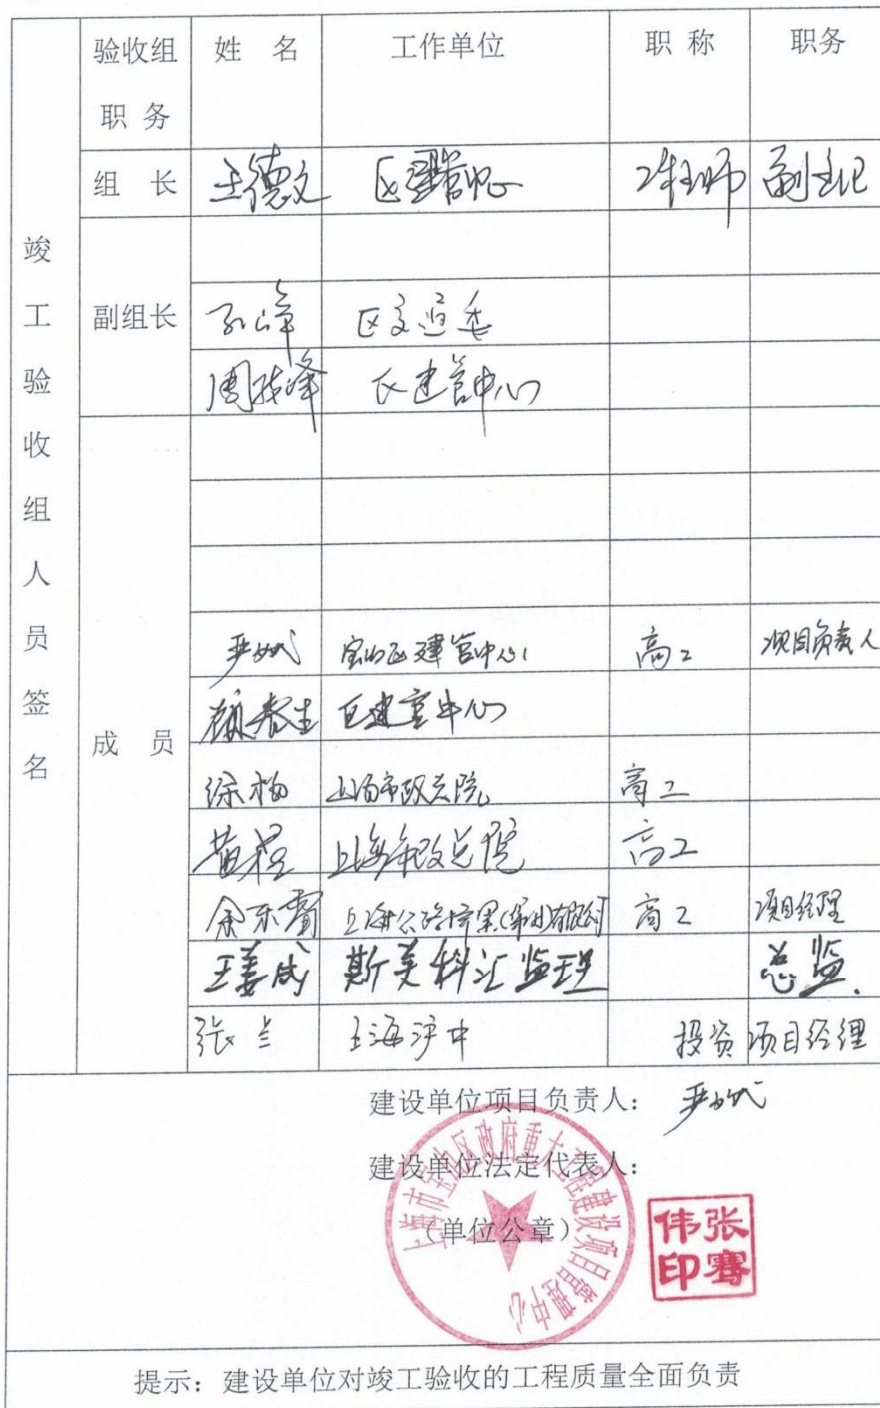 验收组职务 姓名 工作单位 职称 职务
竣工验收组人员签名
组长 王德文 区建管中心 工程师 副主任
副组长
孙峰 区交通委
周 峰 区建管中心
成员
宝山区建管中心 高工 项目负责人
顾春生 区建管中心
徐 上海市政总院 高工
黄 上海市政总院 高工
余东 上海公路桥梁(集团)有限公司 高工 项目经理
王姜成 斯美科汇监理 总监.
张兰 上海沪中 投资项目经理
建设单位项目负责人：
建设单位法定代表人：
（单位公章）
上海市宝山区政府重大工程建设项目管理中心
张骞伟印
提示：建设单位对竣工验收的工程质量全面负责